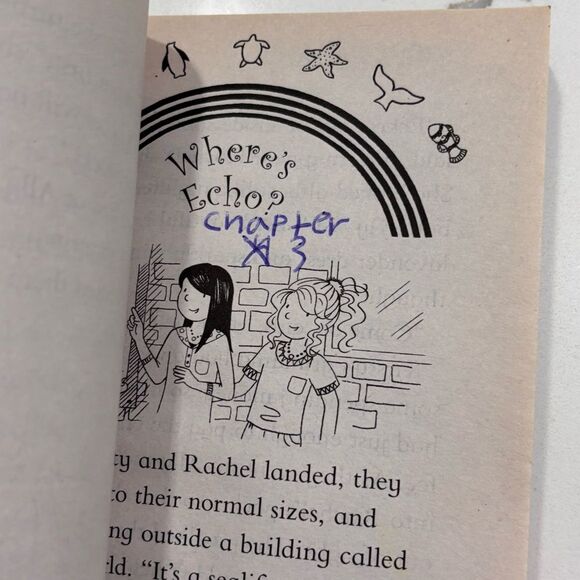 Where's
Echo?
chapter
3
ty and Rachel landed, they
to their normal sizes, and
ng outside a building called
ld. "It's a sealif